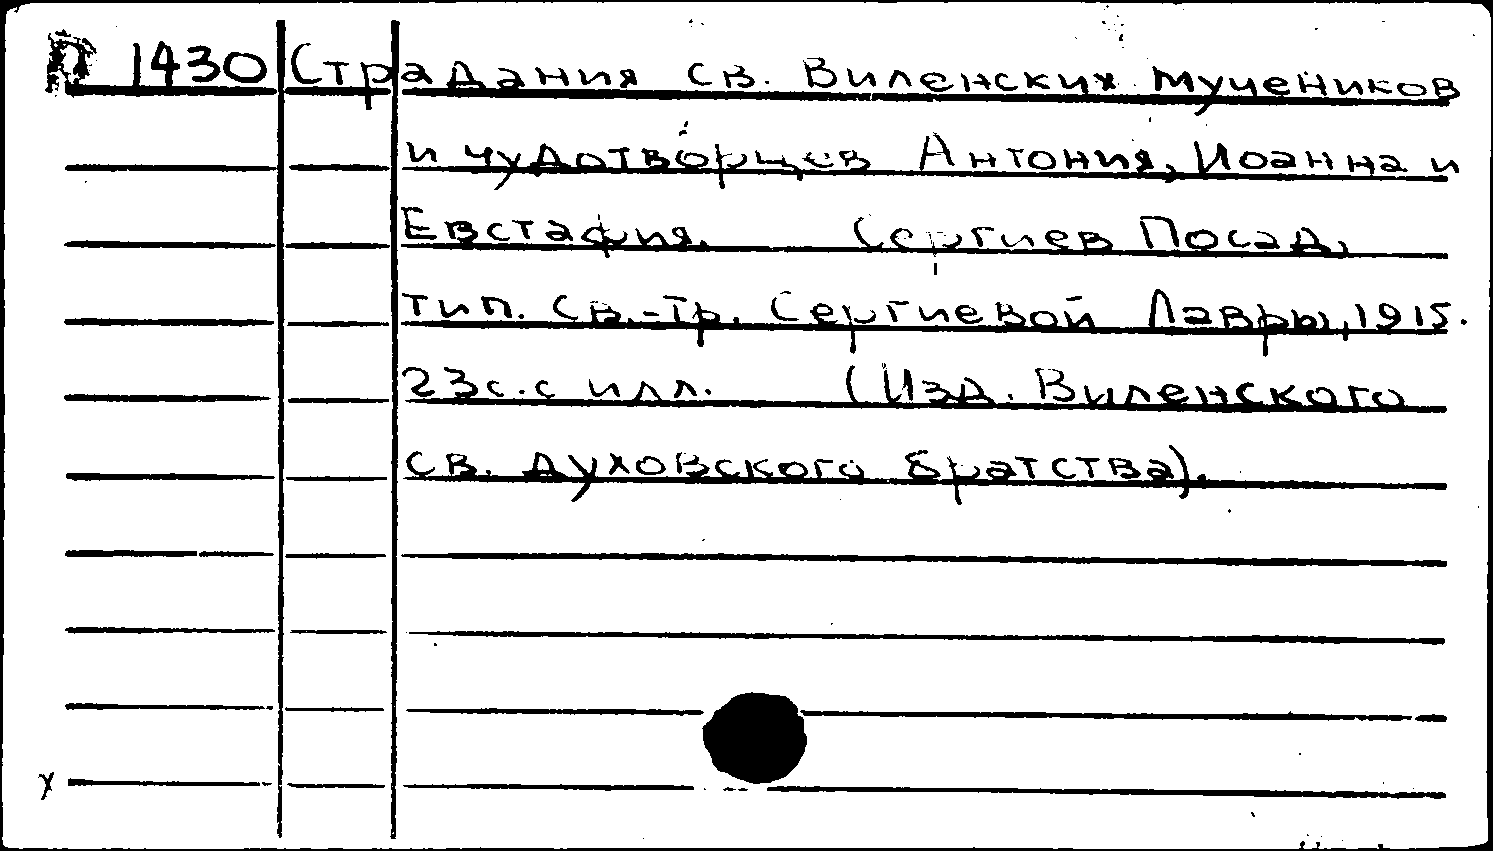 П 1430 Страдания св. Виленских мучеников
и чудотворцев Антония, Иоанна и
Евстафия. Сергиев Посад,
тип. Св.-Тр. Сергиевой Лавры, 1915.
23с. с илл. (Изд. Виленского
св. духовского братства).
х